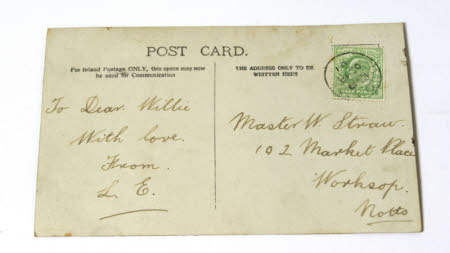 POST CARD.
For Inland Postage ONLY, this space may now
be used for Communication
THE ADDRESS ONLY TO BE
WRITTEN HERE
To Dear Willie
With love.
From.
L. E.
Master W. Straw.
102 Market Place
Worksop.
Notts